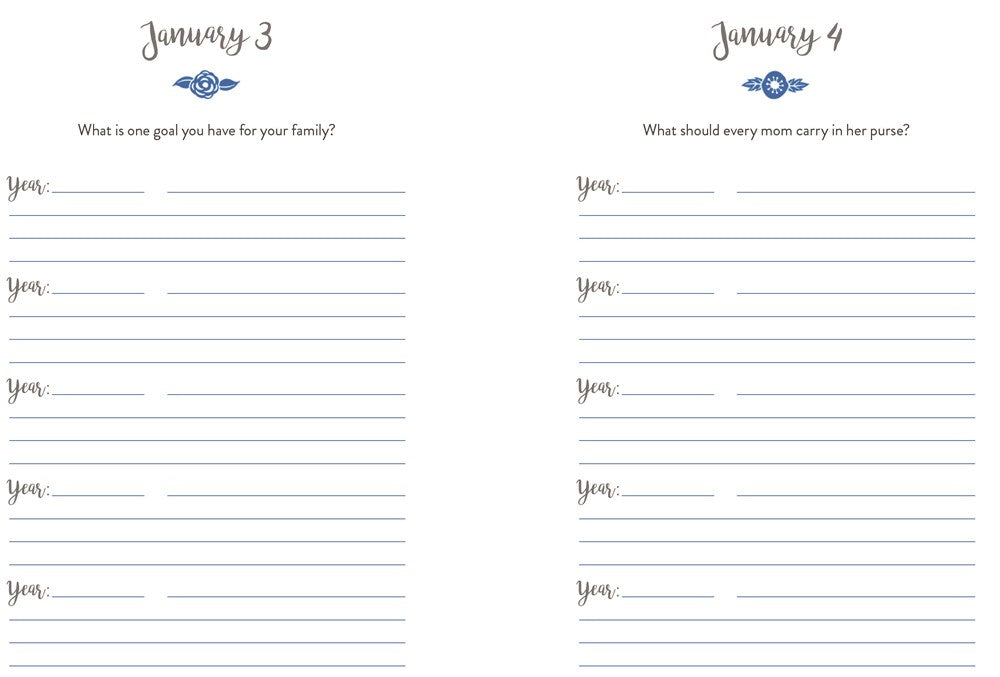 January 3
What is one goal you have for your family?
Year:
Year:
Year:
Year:
Year:
January 4
What should every mom carry in her purse?
Year:
Year:
Year:
Year:
Year: